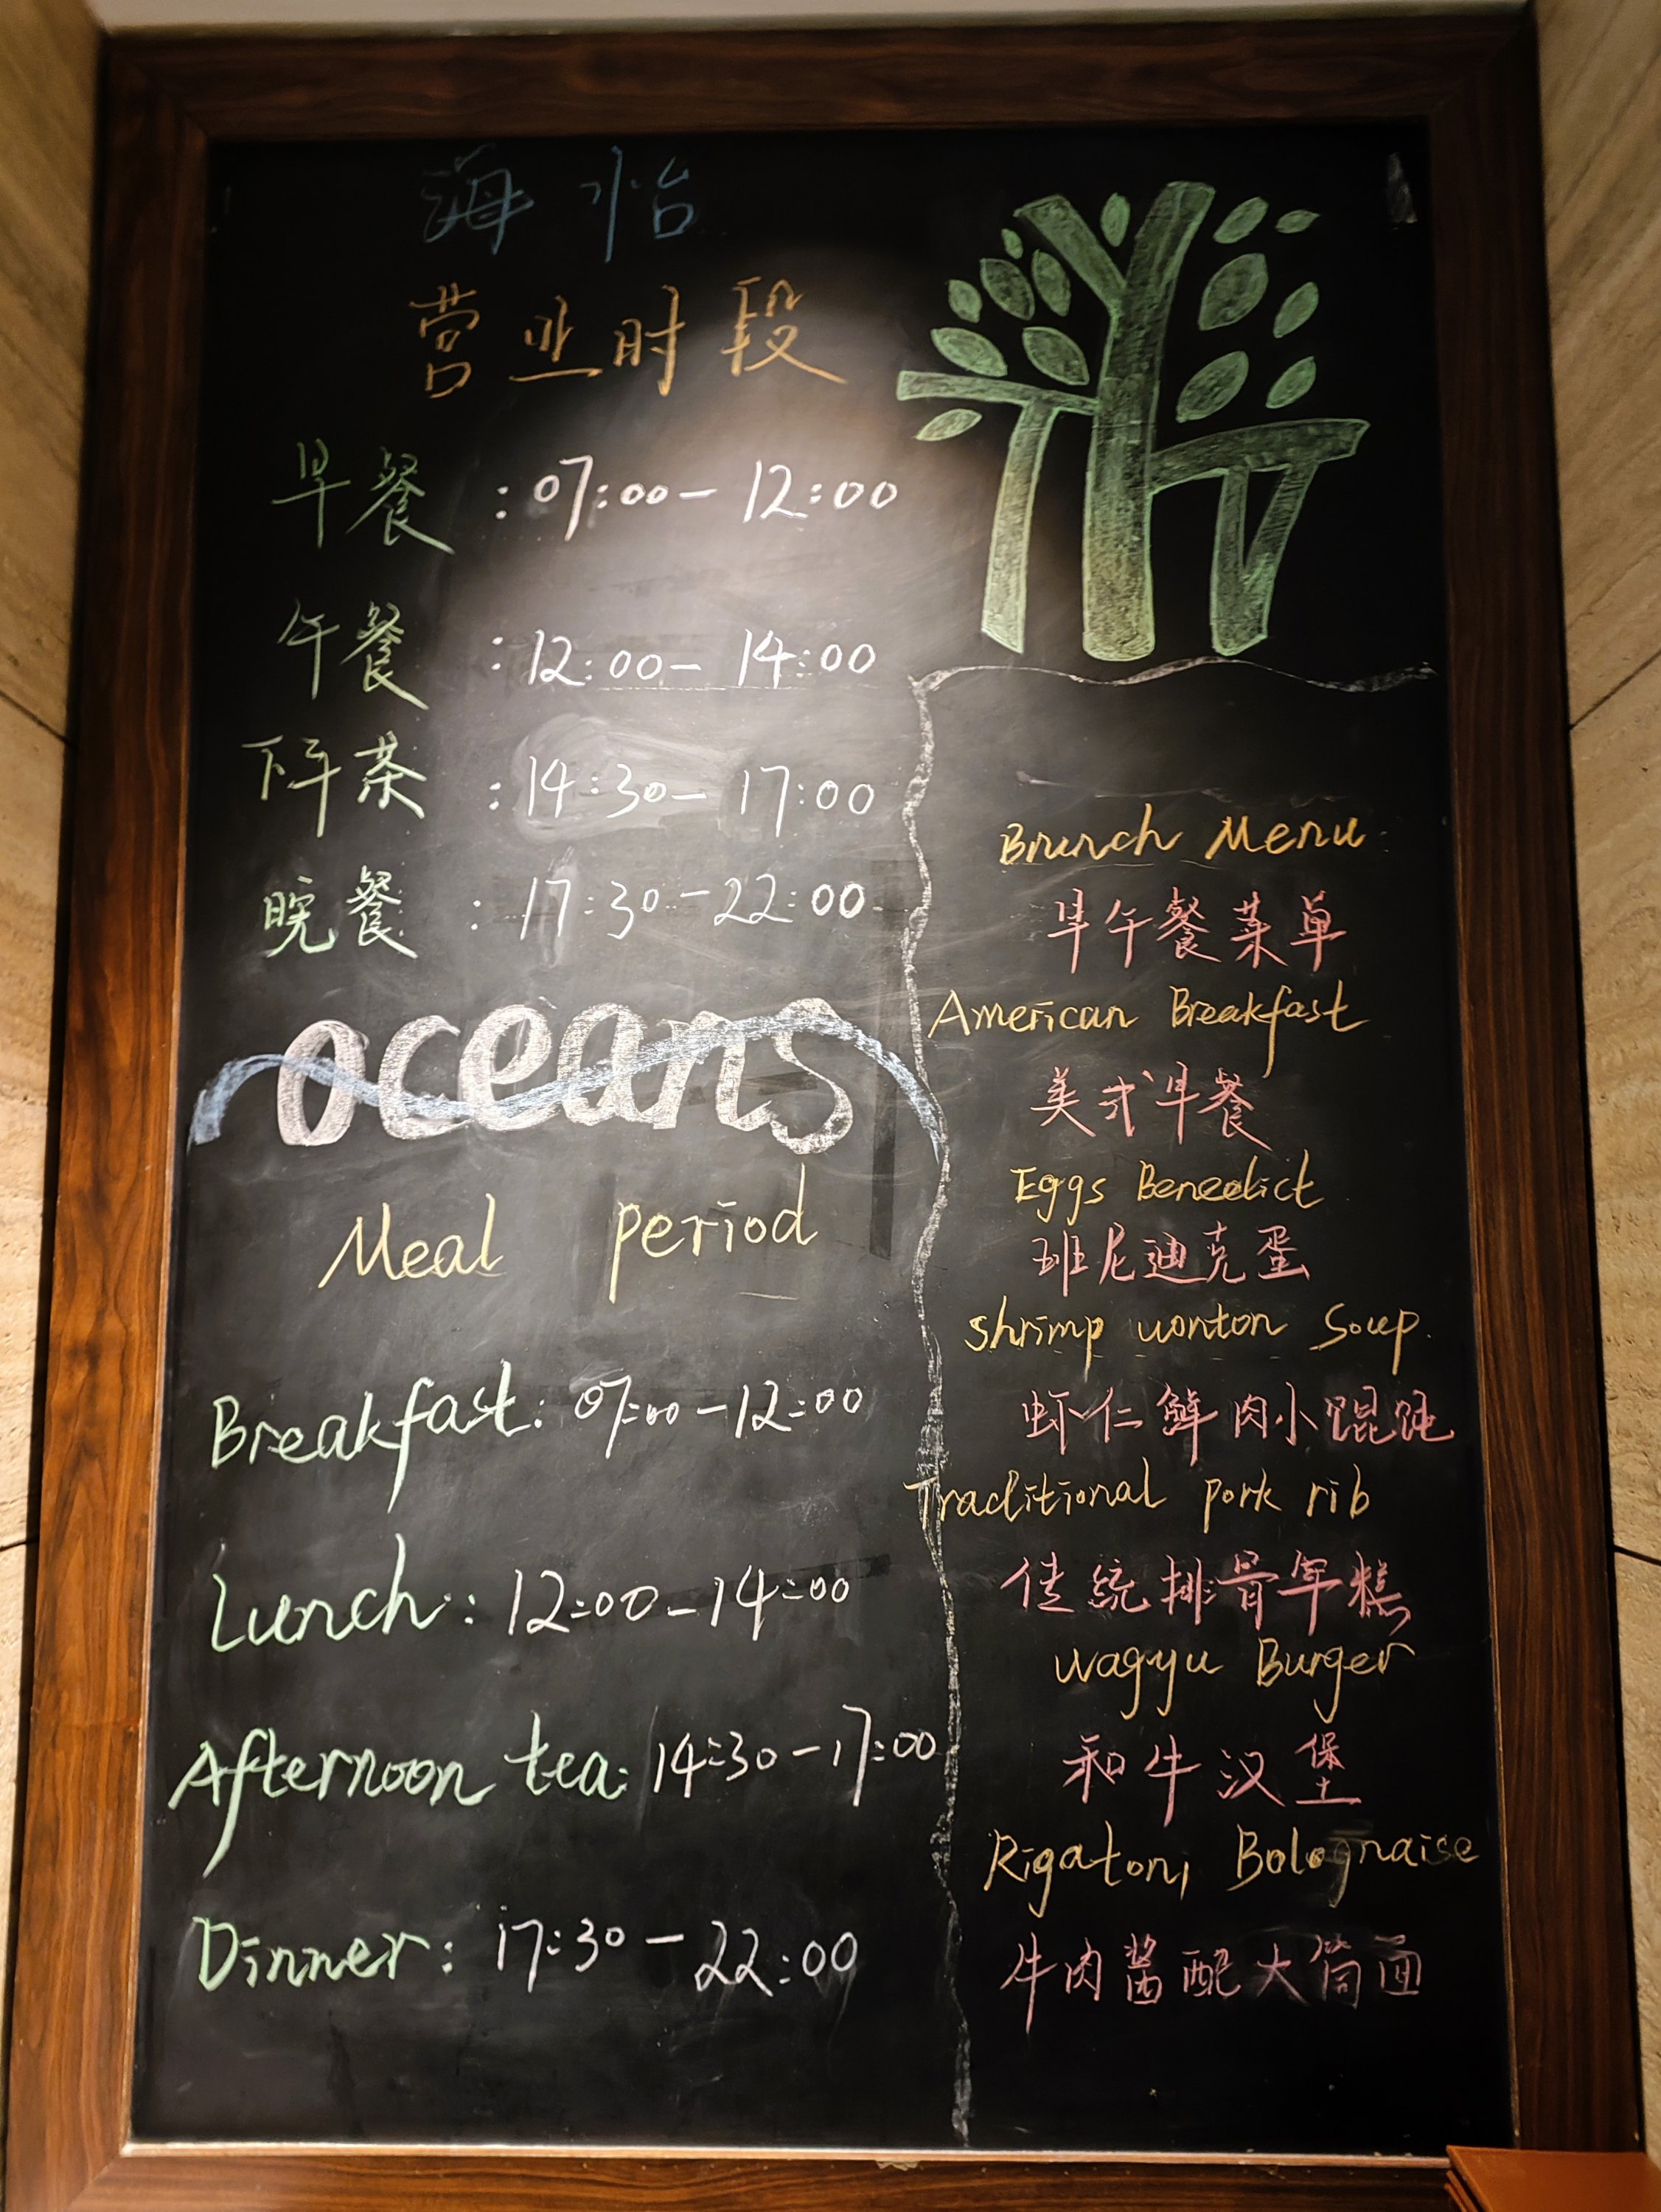 海怡
营业时段
早餐 : 07:00 - 12:00
午餐 : 12:00 - 14:00
下午茶 : 14:30 - 17:00
晚餐 : 17:30 - 22:00
oceans
Meal period
Breakfast: 07:00 - 12:00
Lunch: 12:00 - 14:00
Afternoon tea: 14:30 - 17:00
Dinner: 17:30 - 22:00
Brunch Menu
早午餐菜单
American Breakfast
美式早餐
Eggs Benedict
班尼迪克蛋
Shrimp wonton Soup
虾仁鲜肉小馄饨
Traditional pork rib
传统排骨年糕
Wagyu Burger
和牛汉堡
Rigatoni Bolognaise
牛肉酱配大筒面